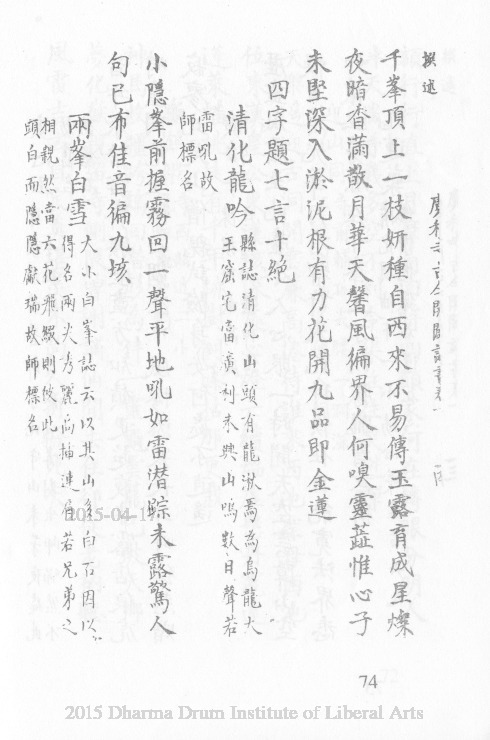 撰述
千峯頂上一枝妍種自西來不易傳玉露育成星燦
夜暗香滿散月華天馨風徧界人何嗅靈蕋惟心子
未堅深入淤泥根有力花開九品即金蓮
四字題七言十絕
清化龍吟
縣誌清化山頭有龍湫焉為烏龍大
王窟宅當廣利未興山鳴數日聲若
雷吼故
師標名
小隱峯前握霧回一聲平地吼如雷潛踪未露驚人
句已布佳音徧九垓
兩峯白雪
大小白峯誌云以其山多白石因以
得名兩尖秀麗高插連肩若兄弟之
相親然當六花飛綴則彼此
頭白而隱隱獻瑞故師標名
74
2015-04-17
2015 Dharma Drum Institute of Liberal Arts